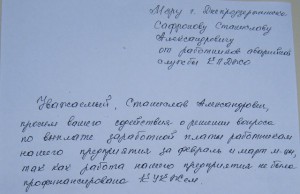 Мэру г. Днепродзержинска
Сафронову Станиславу
Александровичу
от работников аварийной
службы КП ДЖО
Уважаемый, Станислав Александрович,
просим вашего содействия о решении вопроса
по выплате заработной платы работникам
нашего предприятия за февраль и март м-цы,
так как работа нашего предприятия не была
профинансирована